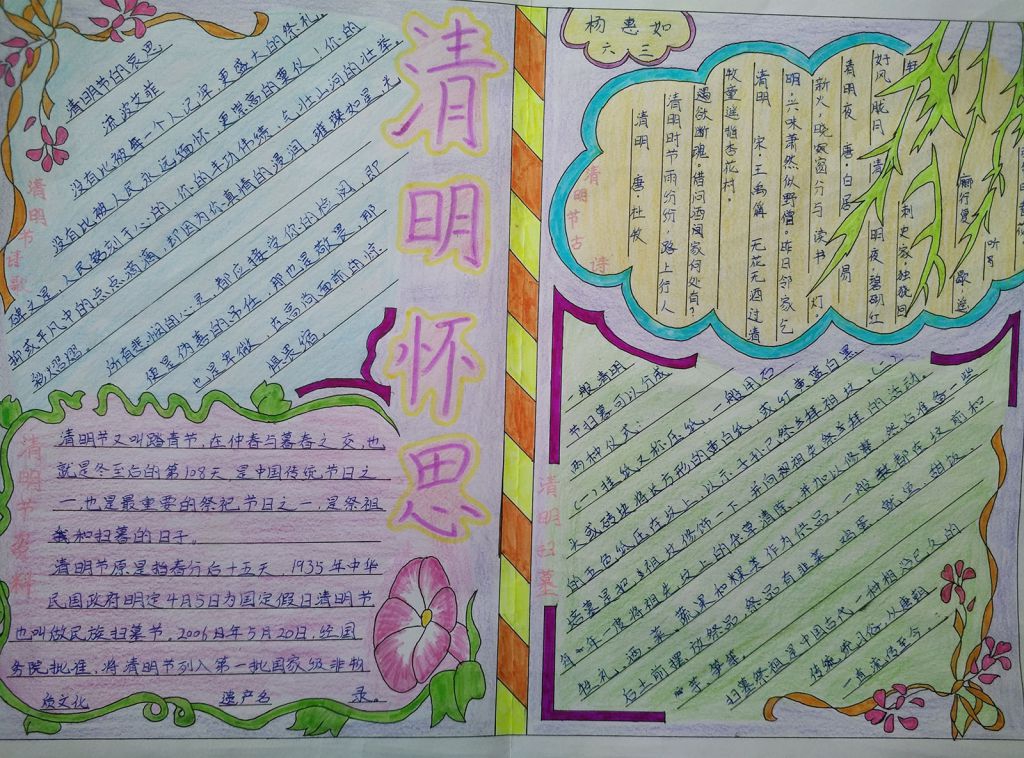 清明怀思
清明节诗歌
清明节的哀思
流波艾菲
没有比被每一个人记深,更盛大的祭礼
没有比被人民永远缅怀,更崇高的重仪!你的
碑文是,人民
你的丰功伟绩,气壮山河的壮举,
抑或平凡中的点点滴滴,却因为你真情的浸润,璀璨如星,光
彩熠熠。
所有悲悯的心灵,都应接受你的检阅,即
便是伪善的吊仕,那也是敬畏,那
也是卑微,在高尚面前的惊
惧畏缩。
清明节资料
清明节又叫踏青节,在仲春与暮春之交,也
就是冬至后的第108天,是中国传统节日之
一,也是最重要的祭祀节日之一,是祭祖
和扫墓的日子。
清明节原是指春分后十五天,1935年中华
民国政府明定4月5日为国定假日清明节
也叫做民族扫墓节,2006年5月20日,经国
务院批准,将清明节列入第一批国家级非物
质文化 遗产名 录。
杨惠如
六 三
清明节古诗
清明 唐·杜牧
清明时节雨纷纷,路上行人
遇欲断魂。借问酒家何处有?
牧童遥指杏花村。
清明 宋·王禹偁 无花无酒过清
明,兴味萧然似野僧。昨日邻家乞
新火,晓窗分与读书灯。
清明夜 唐·白居易
好风胧月清明夜,碧砌红
轩刺史家。独绕回
廊行复歇,遥
听弦
清明扫墓
一般清明
节扫墓可以分成
两种仪式:
(一)挂纸又称压纸,一般用石
头或砖块将长方形的黄白纸,或红黄蓝白黑
的五色纸压在坟上,以示子孙已祭拜祖坟,(二)
培墓是把
每年一度将祖先坟上的杂草清除,并加以修整,然后准备一些
牲礼、酒、菜、蔬果和粿类作为供品,一般都在坟前和
后土前摆放祭品,祭品有韭菜、鸡蛋、就里、甜饭、
芋、笋等。
扫墓祭祖是中国古代一种相沿已久的
传统
一直流传至今。